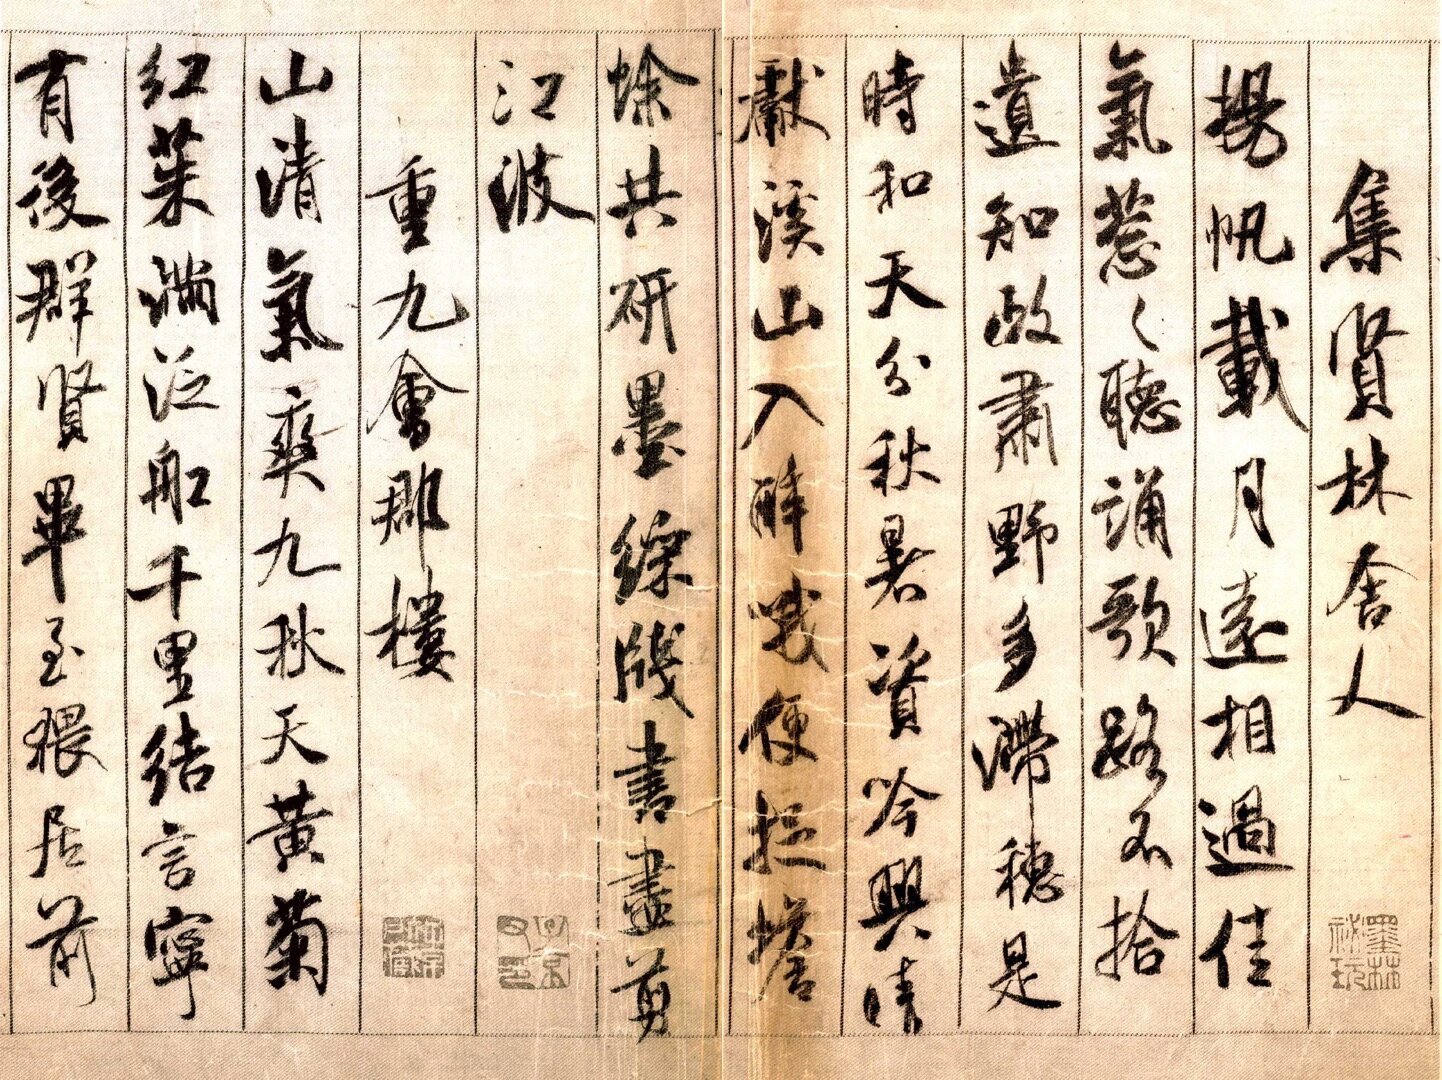 集賢林舍人
揚帆載月遠相過佳
氣葱々聽誦歌路不拾
遺知政肅野多滯穗是
時和天分秋暑資吟興晴
獻溪山入醉哦便捉蟾
蜍共研墨綵牋書盡剪
江波
重九會郡樓
山清氣爽九秋天黃菊
紅茱滿泛船千里結言寧
有後群賢畢至猥居前
墨林祕玩